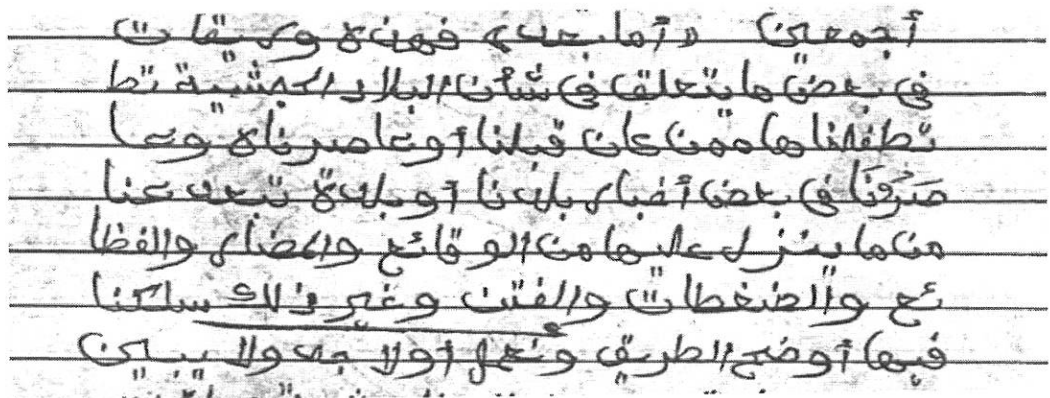 أجمعين " أما بعد " فهذه وريقات
في بعض ما يتعلق في شأن البلاد الحبشية تط
تطفلنا ممن كان قبلنا أو عاصرناه وعا
صَرَنَا في بعض أخبار بلدنا أو بلدة تبعد عنا
من ما ينزل عليها من الوقائع والمضار والفظا
ئع والضغطات والفتن وغير ذلك سلكنا
فيها أوضح الطريق